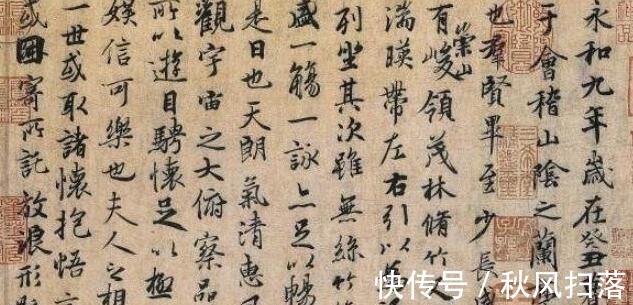 永和九年歲在癸丑
于會稽山陰之蘭
也羣賢畢至少長
有崇山峻領茂林脩竹又
湍暎帶左右引以
列坐其次雖無絲竹
盛一觴一詠亦足以暢
是日也天朗氣清惠
觀宇宙之大俯察品
所以遊目騁懷足以極
娛信可樂也夫人之相
一世或取諸懷抱悟言
或因寄所託放浪形
快传号 / 秋风扫落